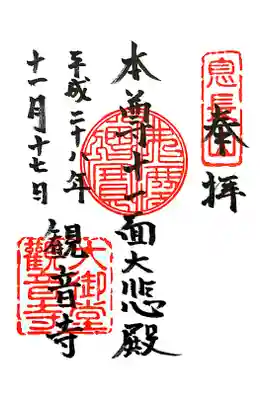 奉拝
息長山
本尊十一面大悲殿
平成二十八年
十一月十七日
観音寺
大御堂
観音寺